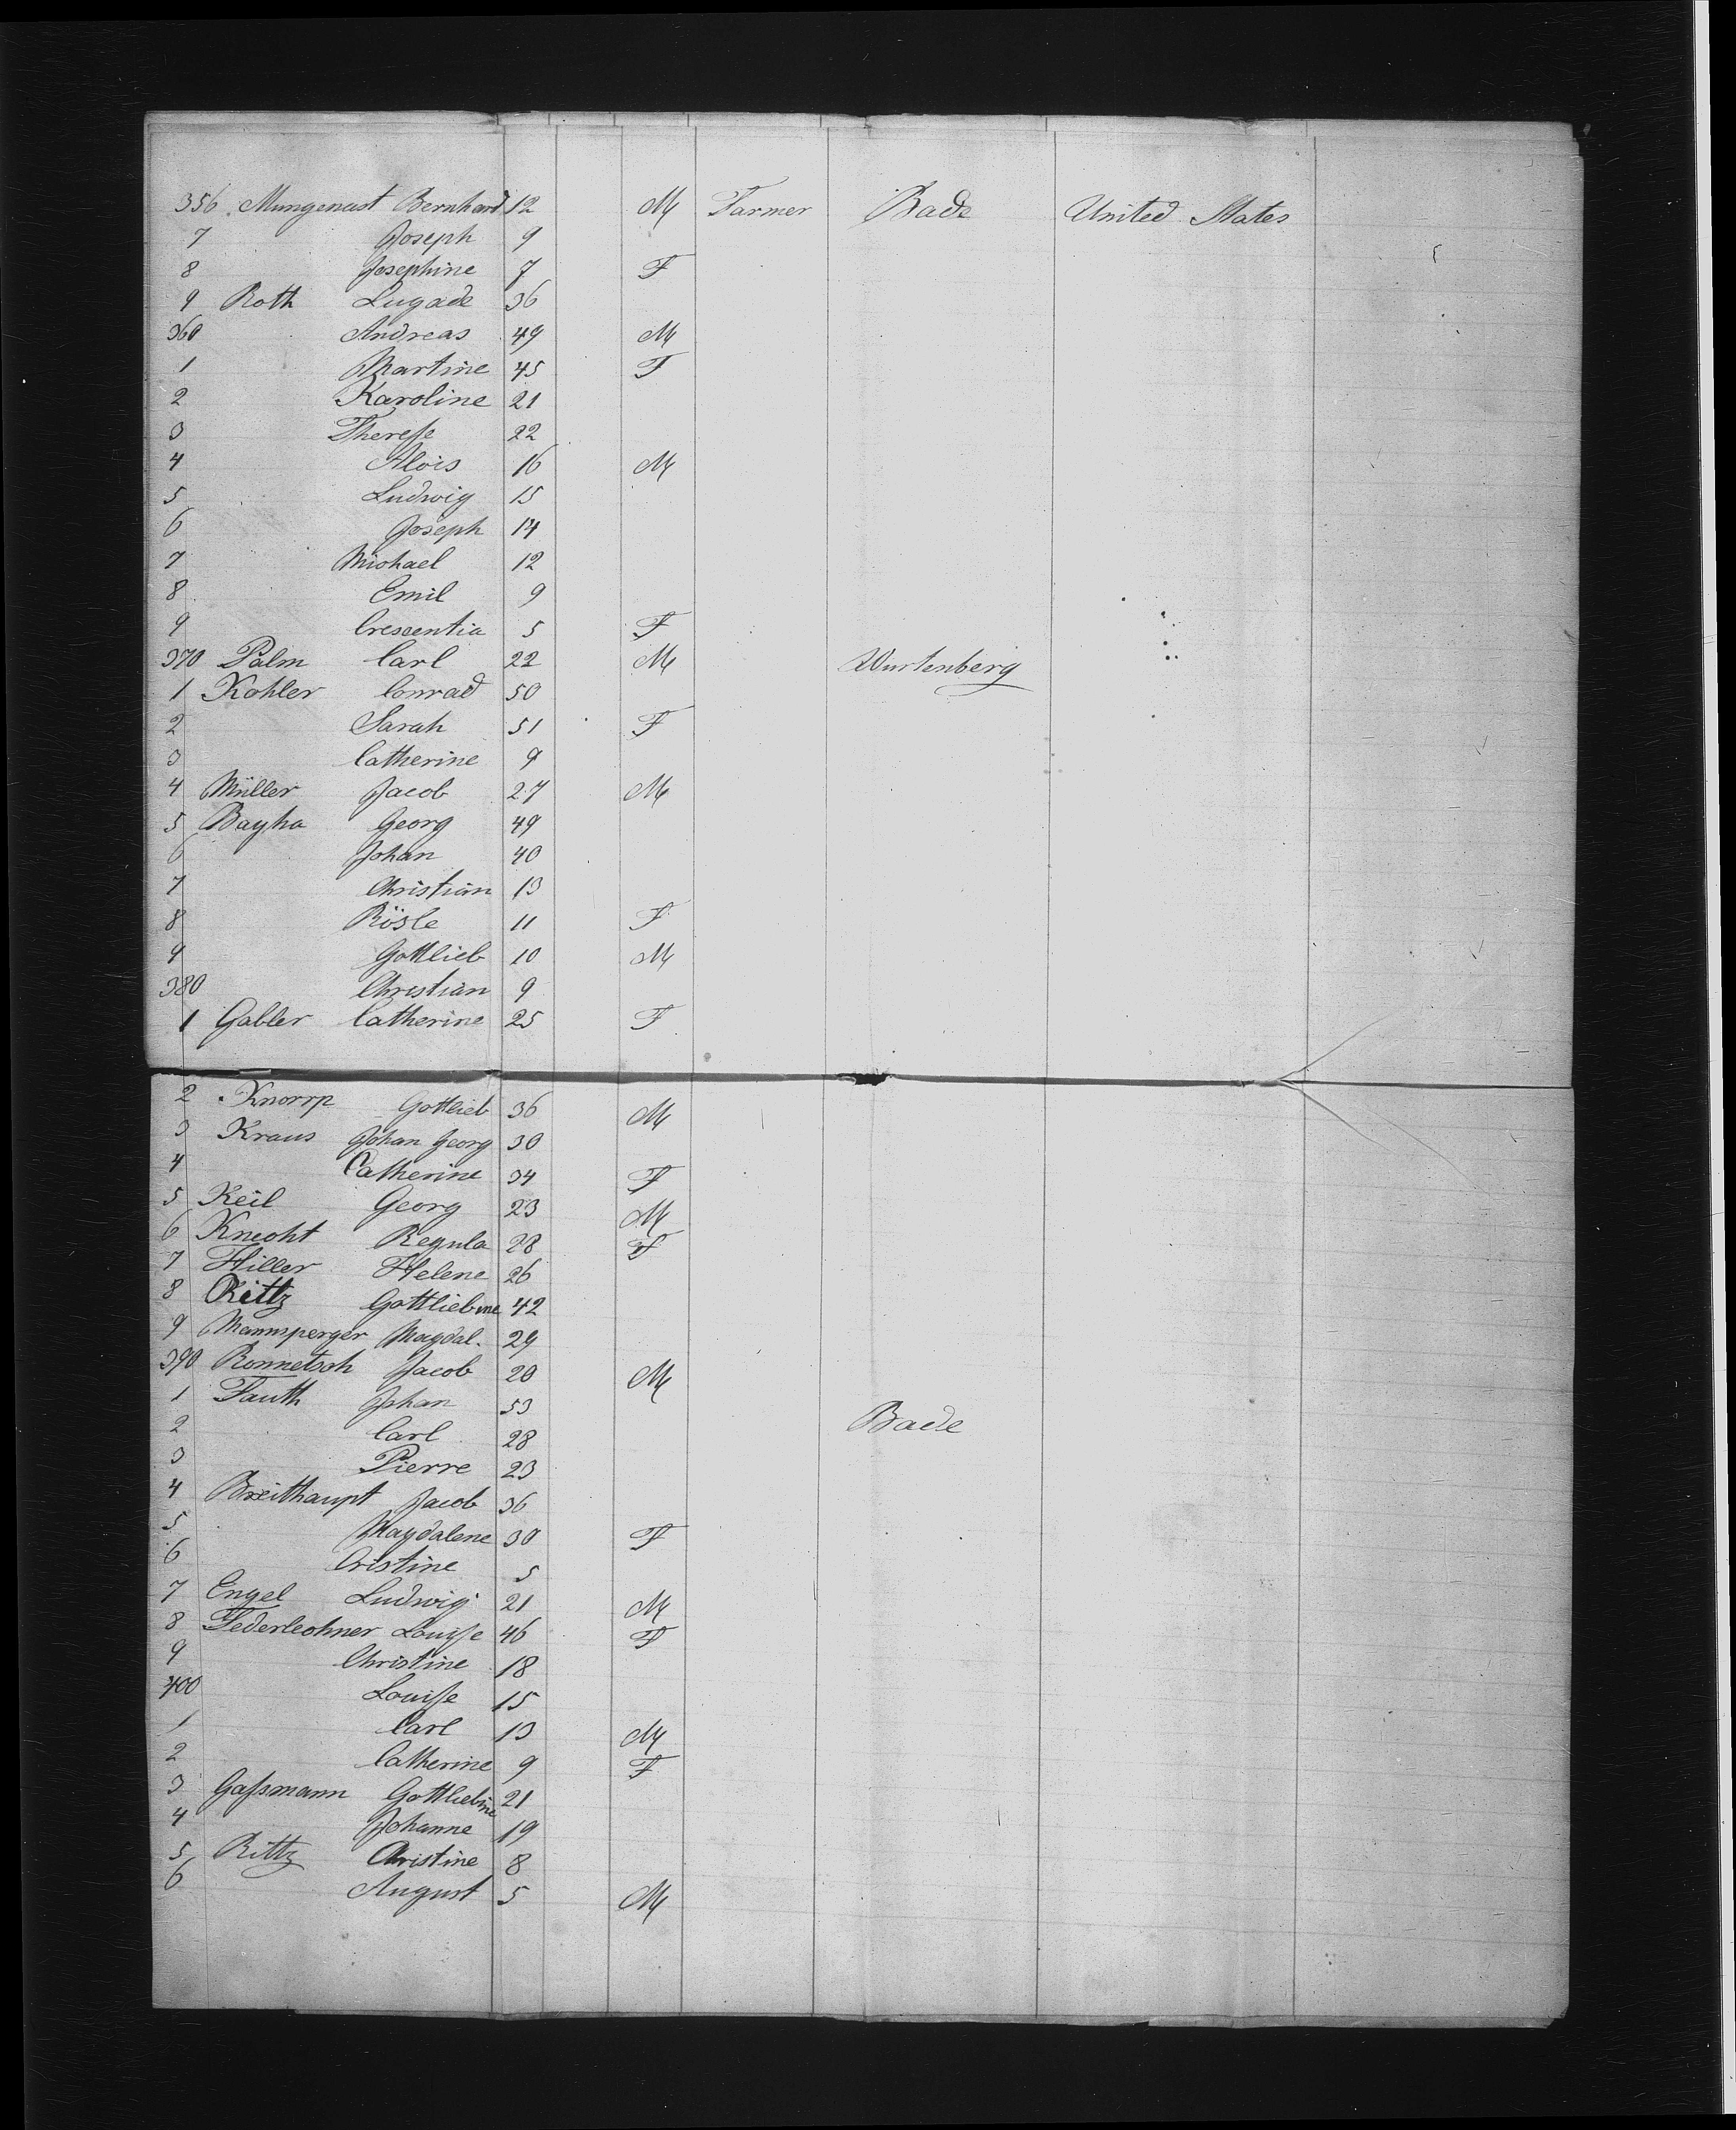 356 Mungenast Bernhard 12 M Farmer Bade United States
7 Joseph 9
8 Josephine 7 F
9 Roth Lugade 36
360 Andreas 49 M
1 Martine 45 F
2 Karoline 21
3 Therese 22
4 Alois 16 M
5 Ludwig 15
6 Joseph 14
7 Michael 12
8 Emil 9
9 Crescentia 5 F
370 Palm Carl 22 M Wurtenberg
1 Kohler Conrad 50
2 Sarah 51 F
3 Catherine 9
4 Müller Jacob 27 M
5 Bayha Georg 49
6 Johan 40
7 Christian 13
8 Rösle 11 F
9 Gottlieb 10 M
380 Christian 9
1 Gabler Catherine 25 F
2 Knorrp Gottlieb 36 M
3 Kraus Johan Georg 30
4 Catherine 34 F
5 Keil Georg 23 M
6 Knecht Regula 28 F
7 Hiller Helene 26
8 Rittz Gottliebine 42
9 Mannsperger Magdal. 29
390 Ronnetsch Jacob 20 M
1 Fauth Johan 53 Bade
2 Carl 28
3 Pierre 23
4 Breithaupt Jacob 36
5 Magdalene 30 F
6 Cristine 5
7 Engel Ludwig 21 M
8 Federlechner Louise 46 F
9 Christine 18
400 Louise 15
1 Carl 13 M
2 Catherine 9 F
3 Gaßmann Gottliebine 21
4 Johanne 19
5 Rittz Christine 8
6 August 5 M